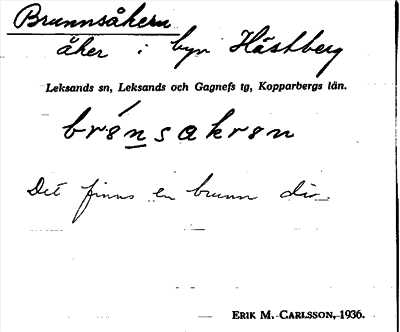 Brunnsåkern
åker i byn Hästberg
Leksands sn, Leksands och Gagnefs tg, Kopparbergs län.
brǿnsakrøn
Det finns en brunn där.
ERIK M. CARLSSON, 1936.